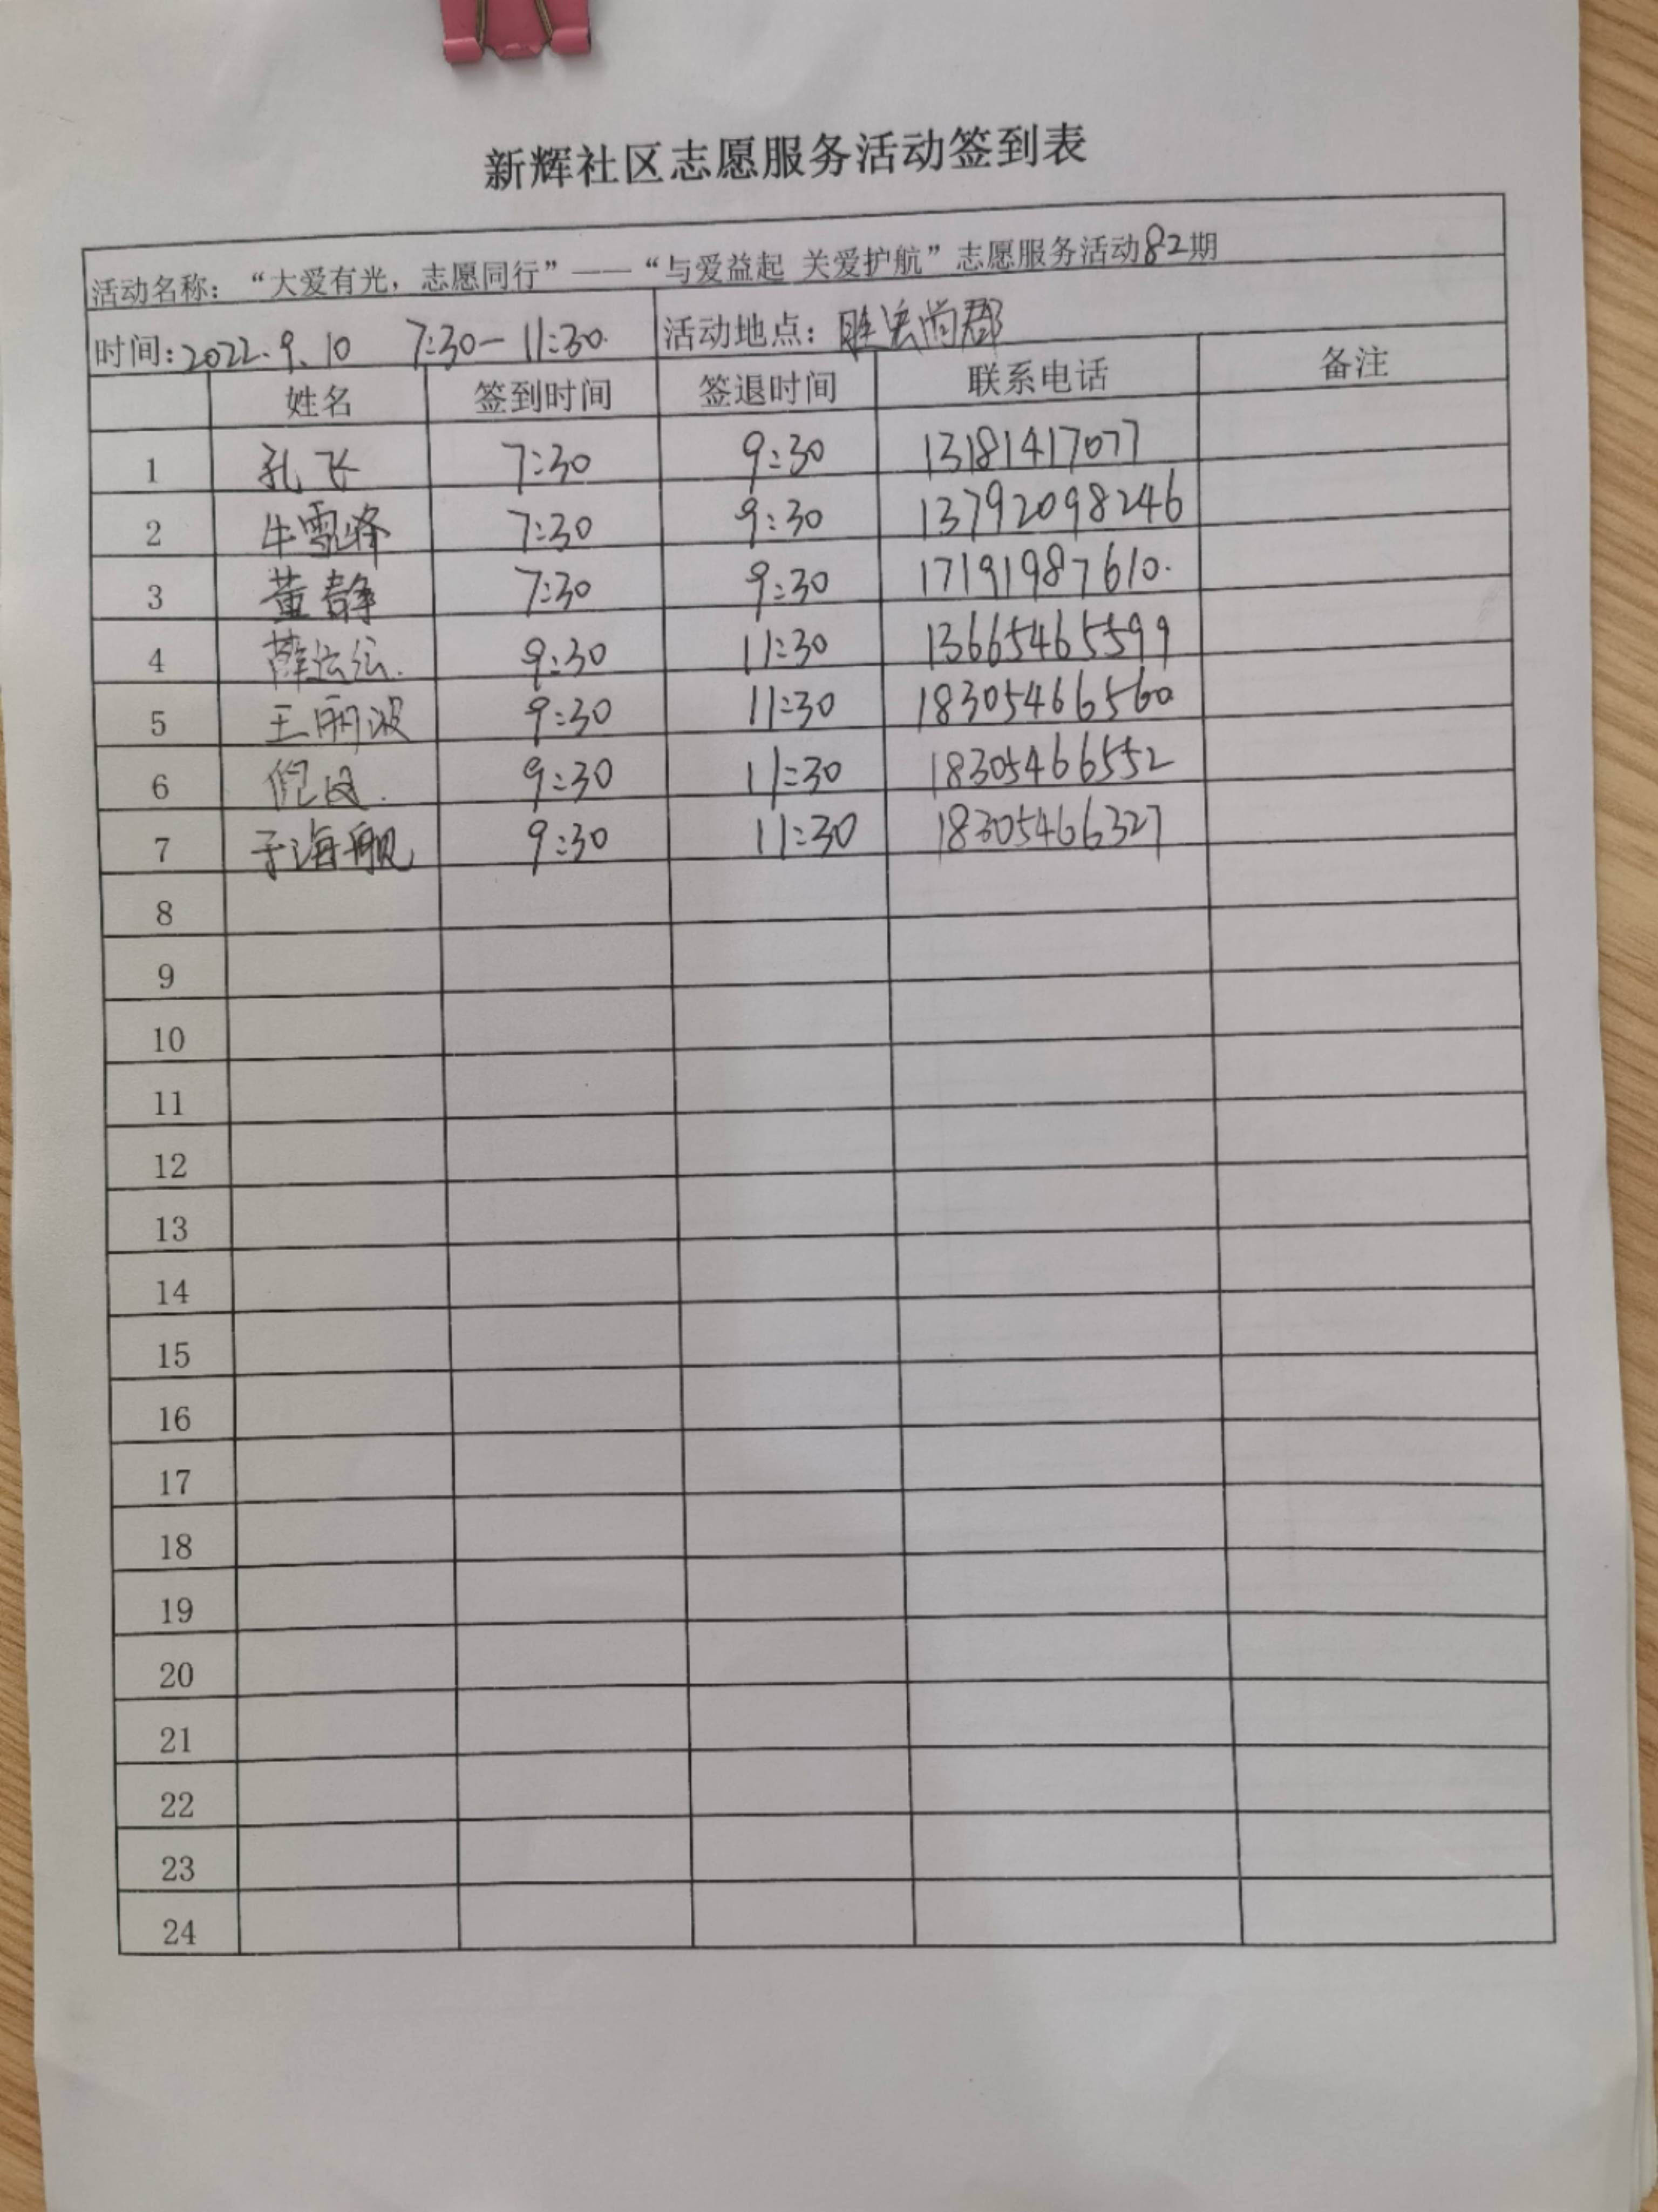 新辉社区志愿服务活动签到表
活动名称：“大爱有光，志愿同行”——“与爱益起 关爱护航”志愿服务活动82期
时间：2022.9.10 7:30—11:30. 活动地点：胜宏尚郡
姓名 签到时间 签退时间 联系电话 备注
1 孔飞 7:30 9:30 13181417077
2 牛雪峰 7:30 9:30 13792098246
3 董静 7:30 9:30 17191987610.
4 薛 9:30 11:30 13665465599
5 王丽波 9:30 11:30 18305466560
6 倪 9:30 11:30 18305466552
7 于海舰 9:30 11:30 18305466327
8
9
10
11
12
13
14
15
16
17
18
19
20
21
22
23
24